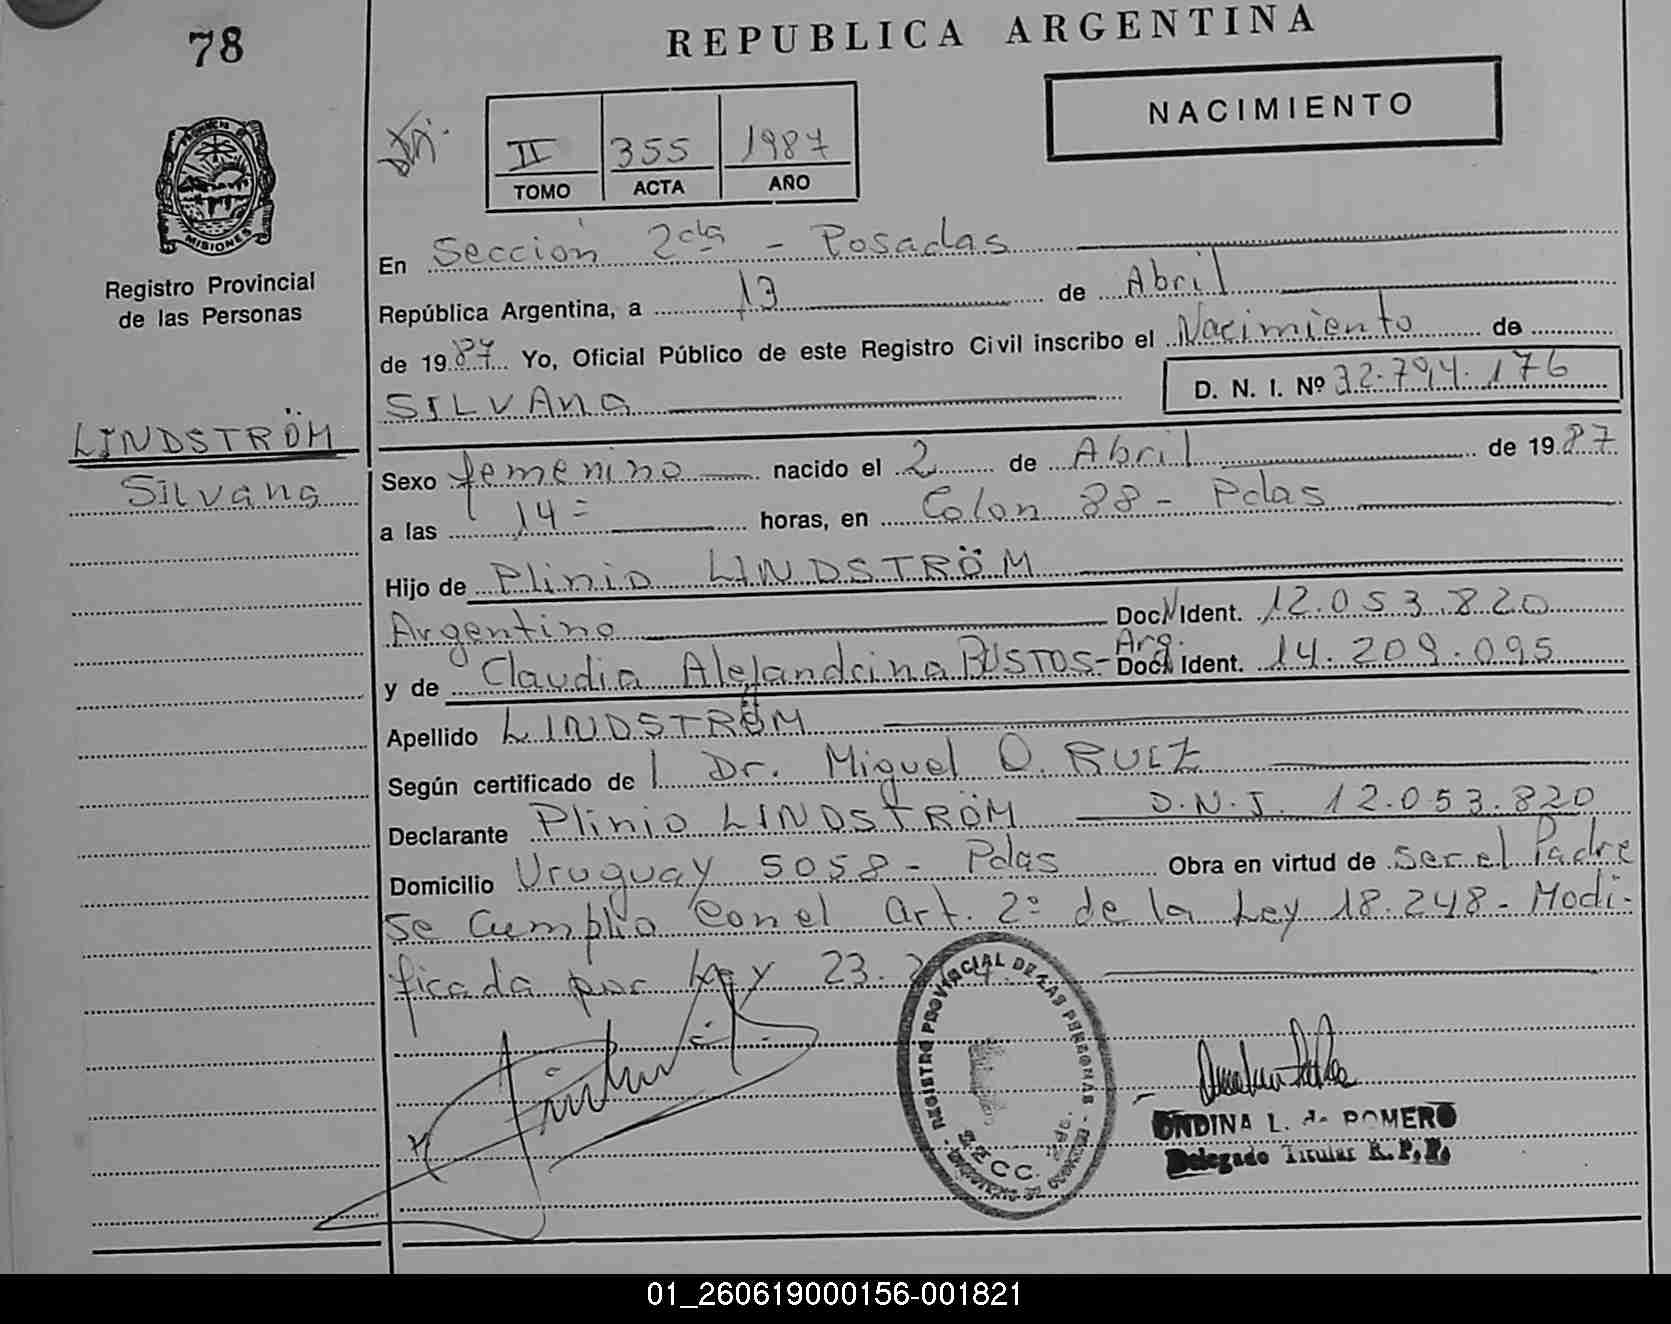 78
REPUBLICA ARGENTINA
NACIMIENTO
II 355 1987
TOMO ACTA AÑO
MISIONES
Registro Provincial
de las Personas
En Sección 2da - Posadas
República Argentina, a 13 de Abril
de 1987. Yo, Oficial Público de este Registro Civil inscribo el Nacimiento de
SILVANA D. N. I. Nº 32.794.176
LINDSTRÖM
Silvana
Sexo femenino nacido el 2 de Abril de 1987
a las 14= horas, en Colon 88 - Pdas
Hijo de Plinio LINDSTRÖM
Argentino Doc. Ident. 12.053.820
y de Claudia Alejandrina BUSTOS - Arg. Doc. Ident. 14.209.095
Apellido LINDSTRÖM
Según certificado de l Dr. Miguel O. RUIZ
Declarante Plinio LINDSTRÖM D.N.I. 12.053.820
Domicilio Uruguay 5058 - Pdas Obra en virtud de ser el Padre
Se Cumplio con el art. 2º de la Ley 18.248 - Modi-
ficada por Ley 23.
REGISTRO PROVINCIAL DE LAS PERSONAS
SECC.
ONDINA L. de ROMERO
Delegado Titular R. P. P.
01_260619000156-001821